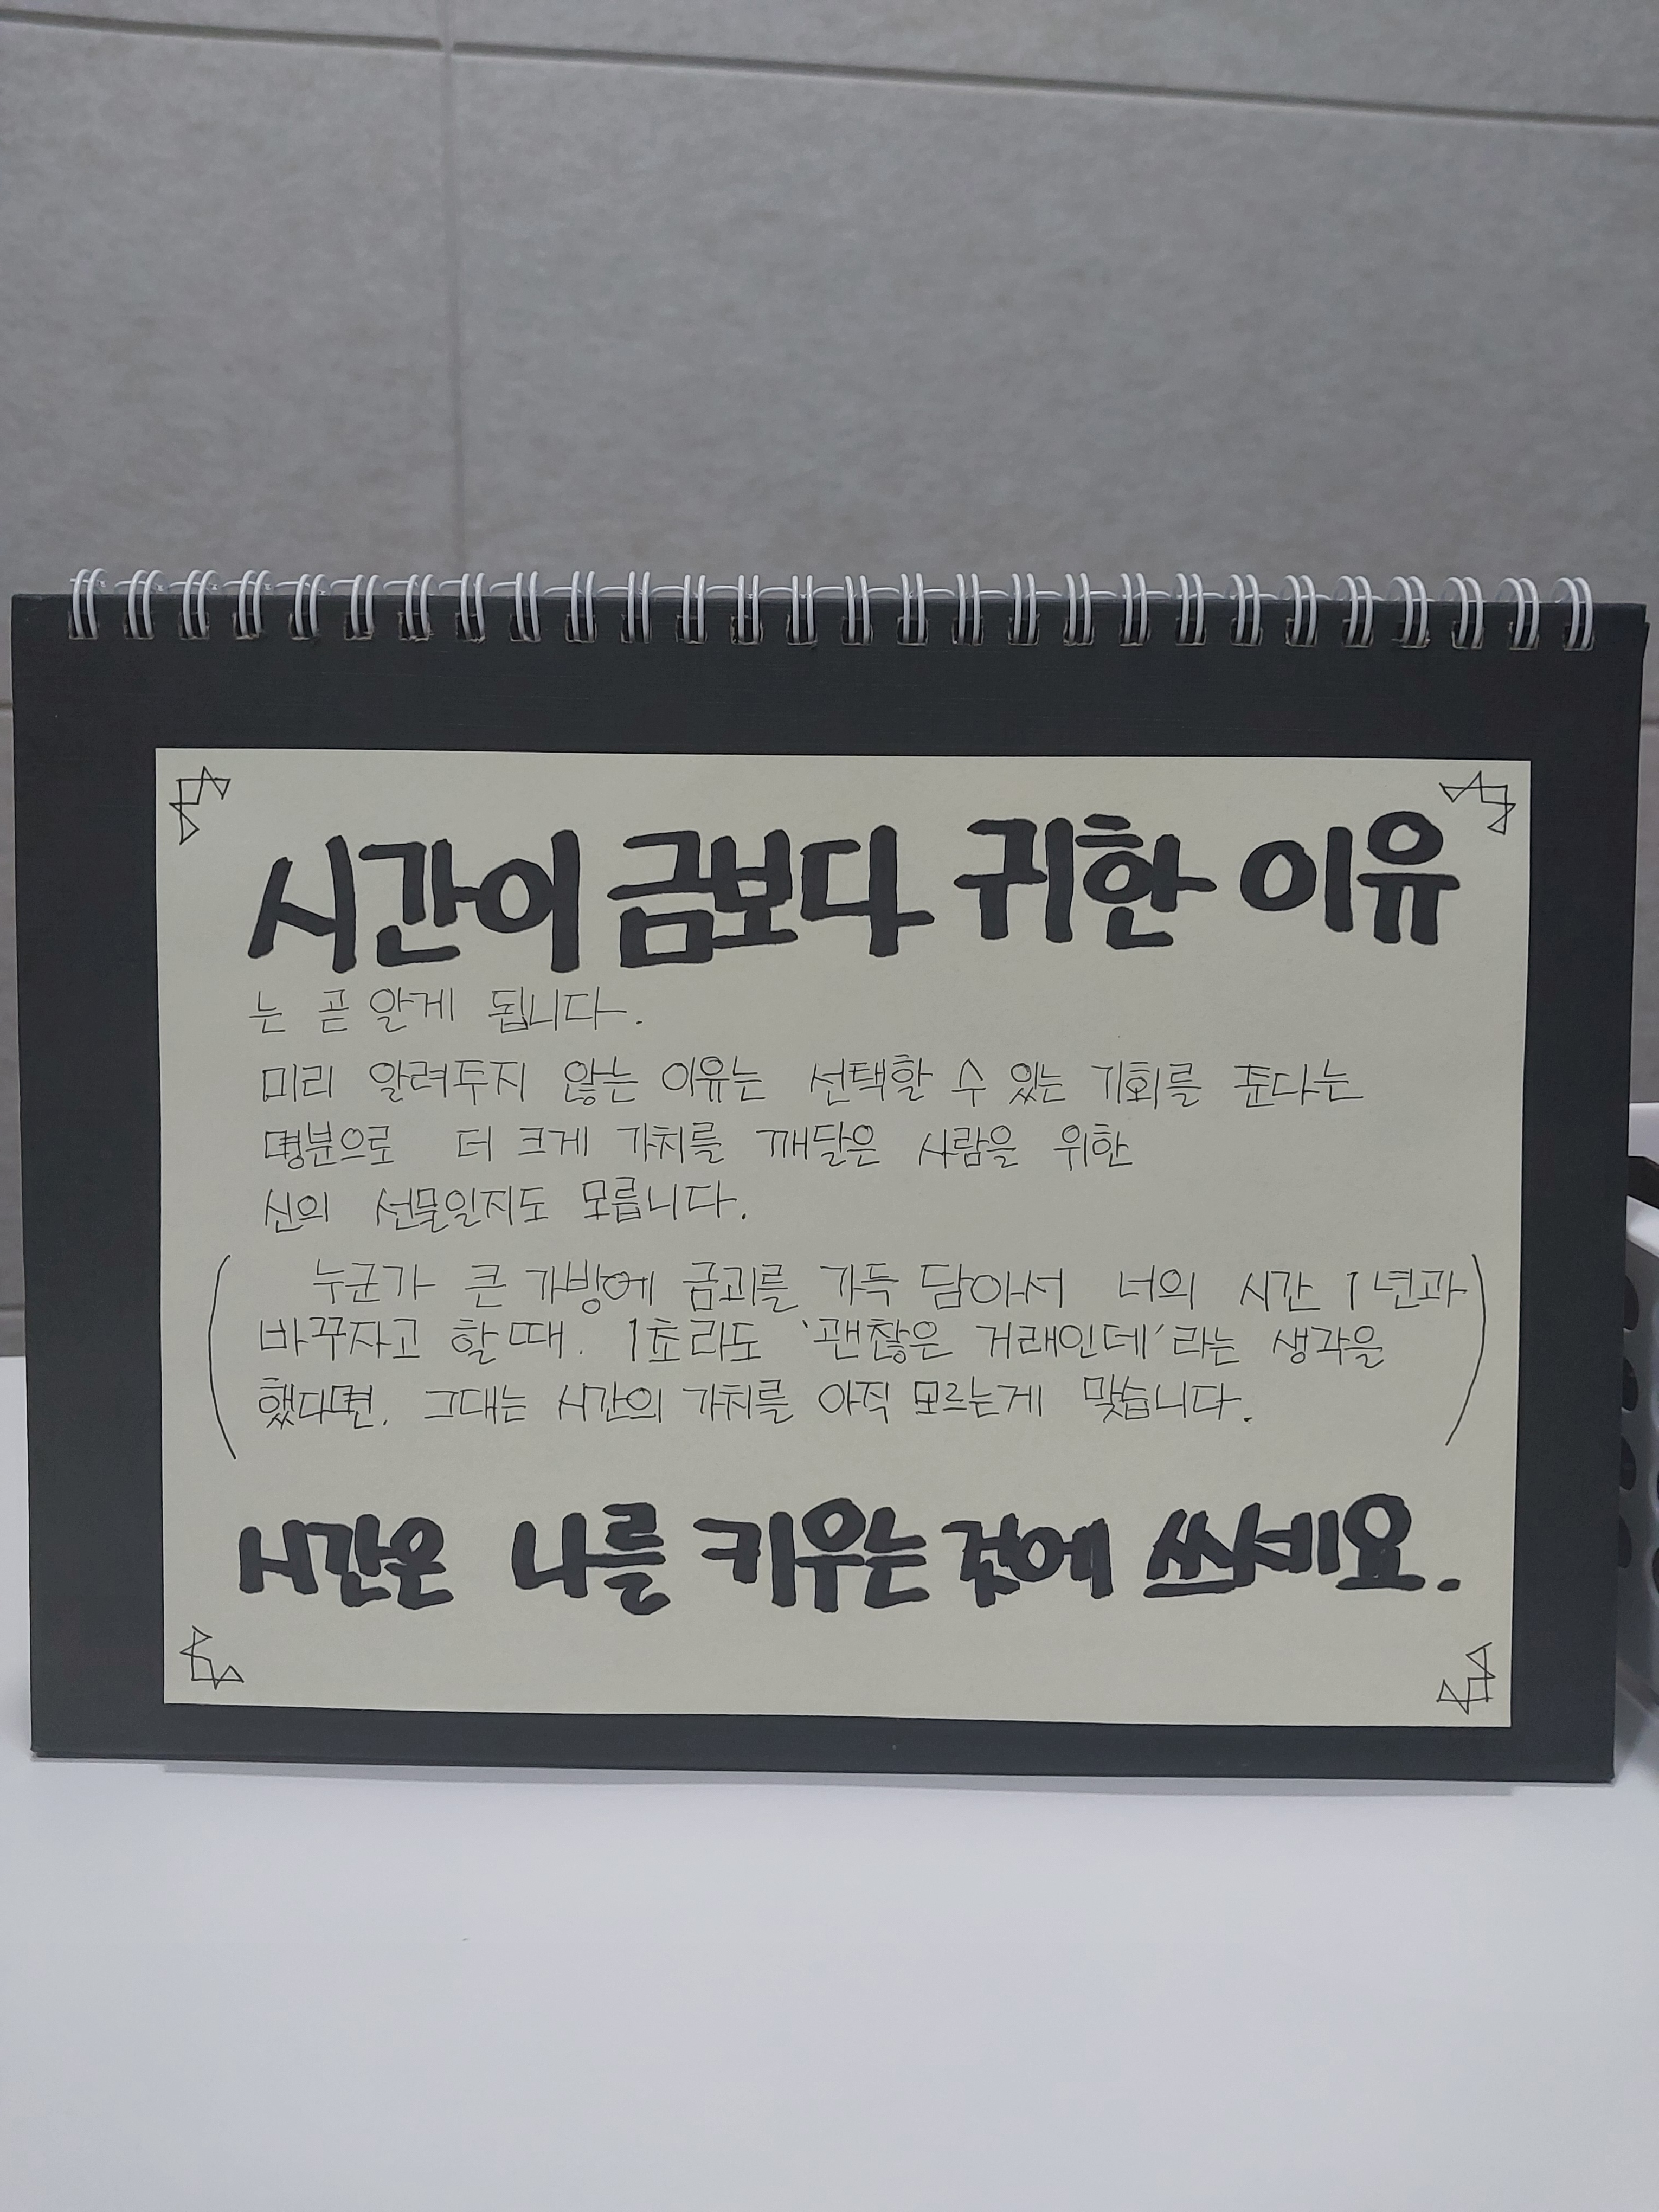 시간이 금보다 귀한 이유
는 곧 알게 됩니다.
미리 알려두지 않는 이유는 선택할 수 있는 기회를 준다는
명분으로 더 크게 가치를 깨달은 사람을 위한
신의 선물일지도 모릅니다.
( 누군가 큰 가방에 금괴를 가득 담아서 너의 시간 1년과
바꾸자고 할때. 1초라도 '괜찮은 거래인데'라는 생각을
했다면, 그대는 시간의 가치를 아직 모르는게 맞습니다. )
시간은 나를 키우는 것에 쓰세요.